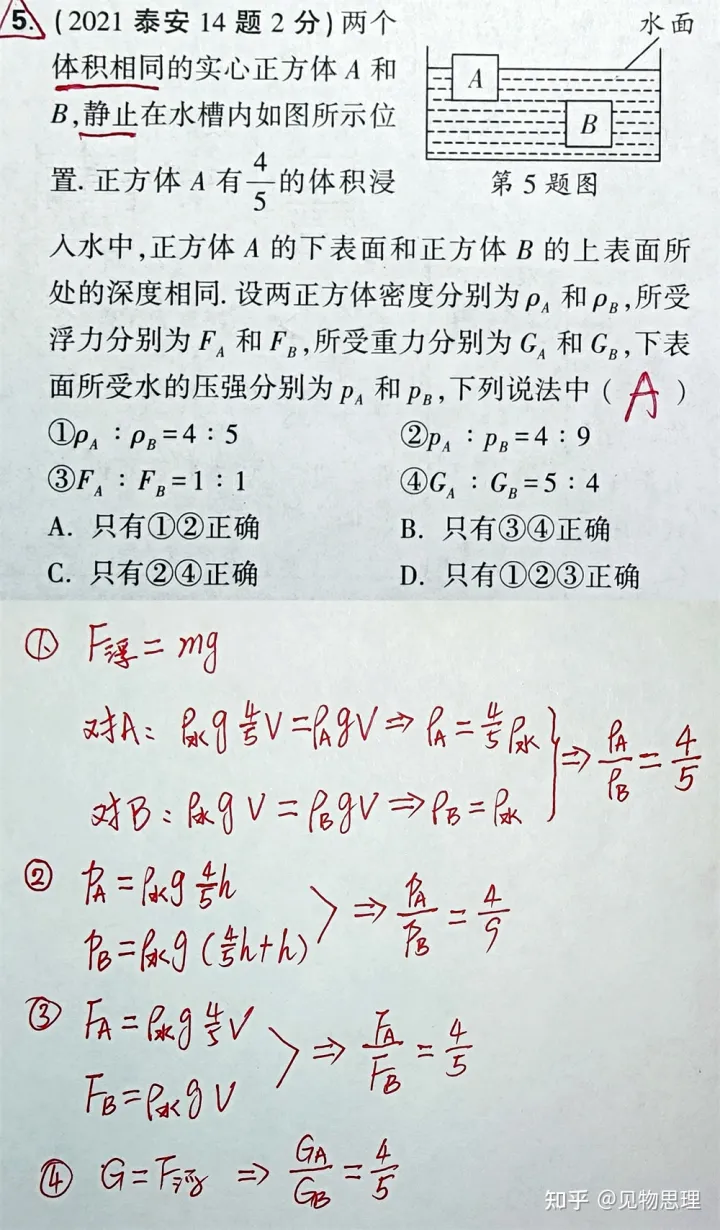 5. (2021 泰安 14 题 2 分)两个
水面
体积相同的实心正方体 A 和
B,静止在水槽内如图所示位
置. 正方体 A 有 4/5 的体积浸
A
B
第 5 题图
入水中,正方体 A 的下表面和正方体 B 的上表面所
处的深度相同. 设两正方体密度分别为 ρ_A 和 ρ_B,所受
浮力分别为 F_A 和 F_B,所受重力分别为 G_A 和 G_B,下表
面所受水的压强分别为 p_A 和 p_B,下列说法中 ( A )
①ρ_A : ρ_B = 4 : 5
②p_A : p_B = 4 : 9
③F_A : F_B = 1 : 1
④G_A : G_B = 5 : 4
A. 只有①②正确
B. 只有③④正确
C. 只有②④正确
D. 只有①②③正确
① F浮 = mg
对A: ρ水 g 4/5 V = ρ_A g V ⇒ ρ_A = 4/5 ρ水
对B: ρ水 g V = ρ_B g V ⇒ ρ_B = ρ水
⇒ ρ_A/ρ_B = 4/5
② p_A = ρ水 g 4/5 h
p_B = ρ水 g (4/5 h + h)
⇒ p_A/p_B = 4/9
③ F_A = ρ水 g 4/5 V
F_B = ρ水 g V
⇒ F_A/F_B = 4/5
④ G = F浮 ⇒ G_A/G_B = 4/5
知乎 @见物思理